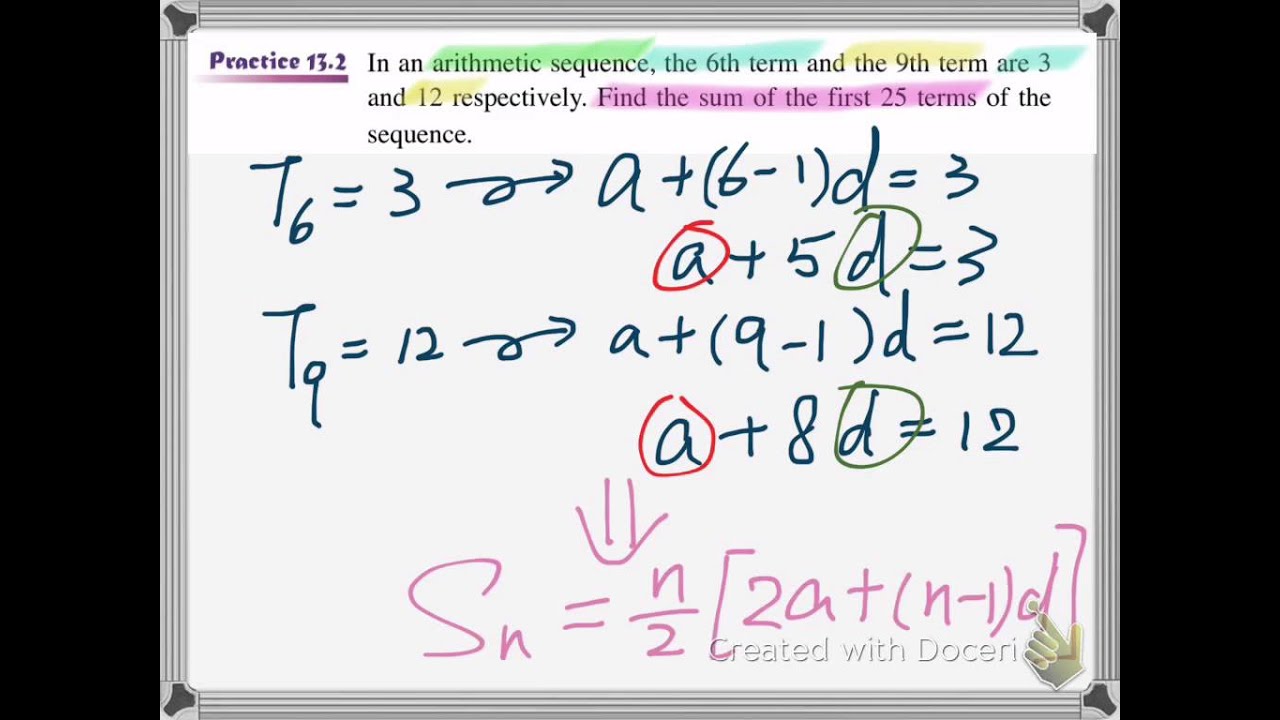 Practice 13.2 In an arithmetic sequence, the 6th term and the 9th term are 3
and 12 respectively. Find the sum of the first 25 terms of the
sequence.
T₆ = 3 → a + (6 - 1)d = 3
a + 5d = 3
T₉ = 12 → a + (9 - 1)d = 12
a + 8d = 12
⇓
Sₙ = n/2 [2a + (n - 1)d]
Created with Doceri